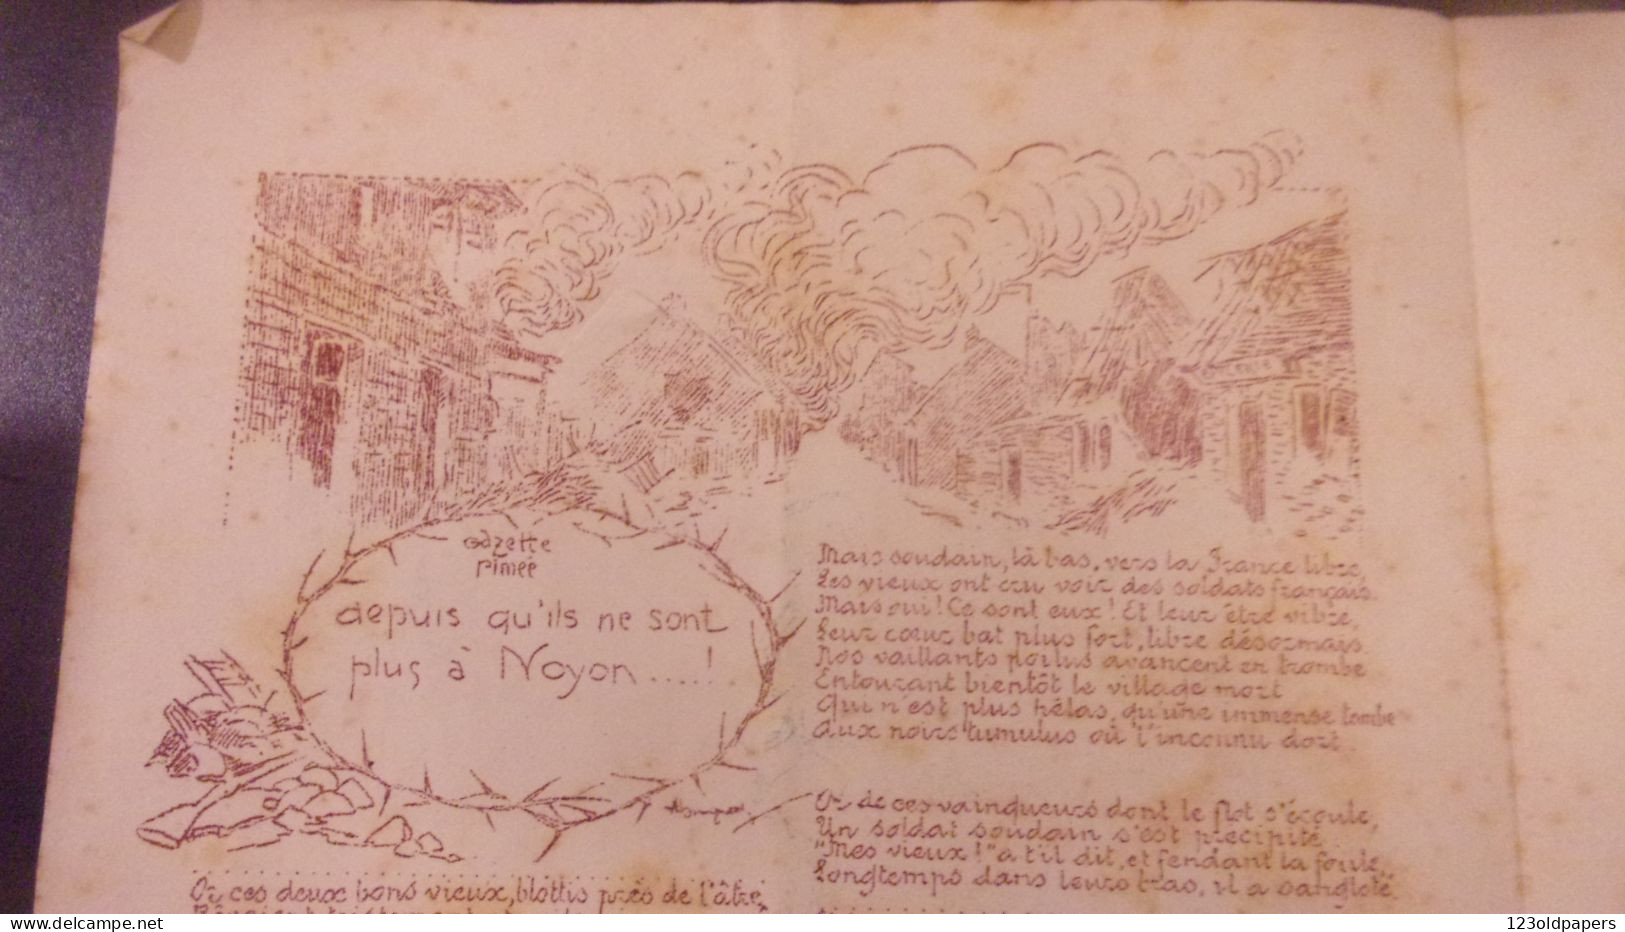 Gazette
rimée
depuis qu'ils ne sont
plus à Noyon.....!
Or ces deux bons vieux, blottis près de l'âtre,
Mais soudain, là bas, vers la France libre,
Les vieux ont cru voir des soldats français.
Mais oui! Ce sont eux! Et leur être vibre,
Leur cœur bat plus fort, libre désormais.
Nos vaillants poilus avancent en trombe
Entourant bientôt le village mort
Qui n'est plus hélas, qu'une immense tombe
Aux noirs tumulus où l'inconnu dort.
Or de ces vainqueurs dont le flot s'écoule,
Un soldat soudain s'est précipité
"Mes vieux!" a t'il dit, et fendant la foule,
Longtemps dans leurs bras, il a sangloté.
123oldpapers